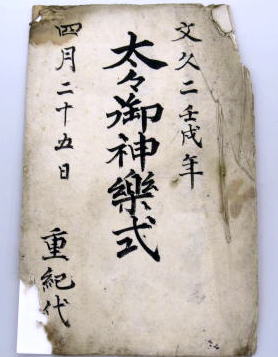 文久二壬戌年
太々御神樂式
四月二十五日
重紀代